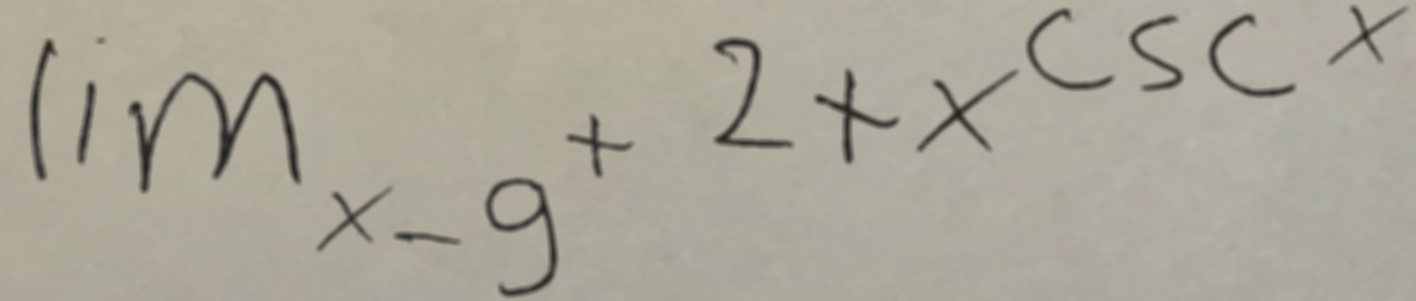 lim x-9⁺ 2+x^csc x